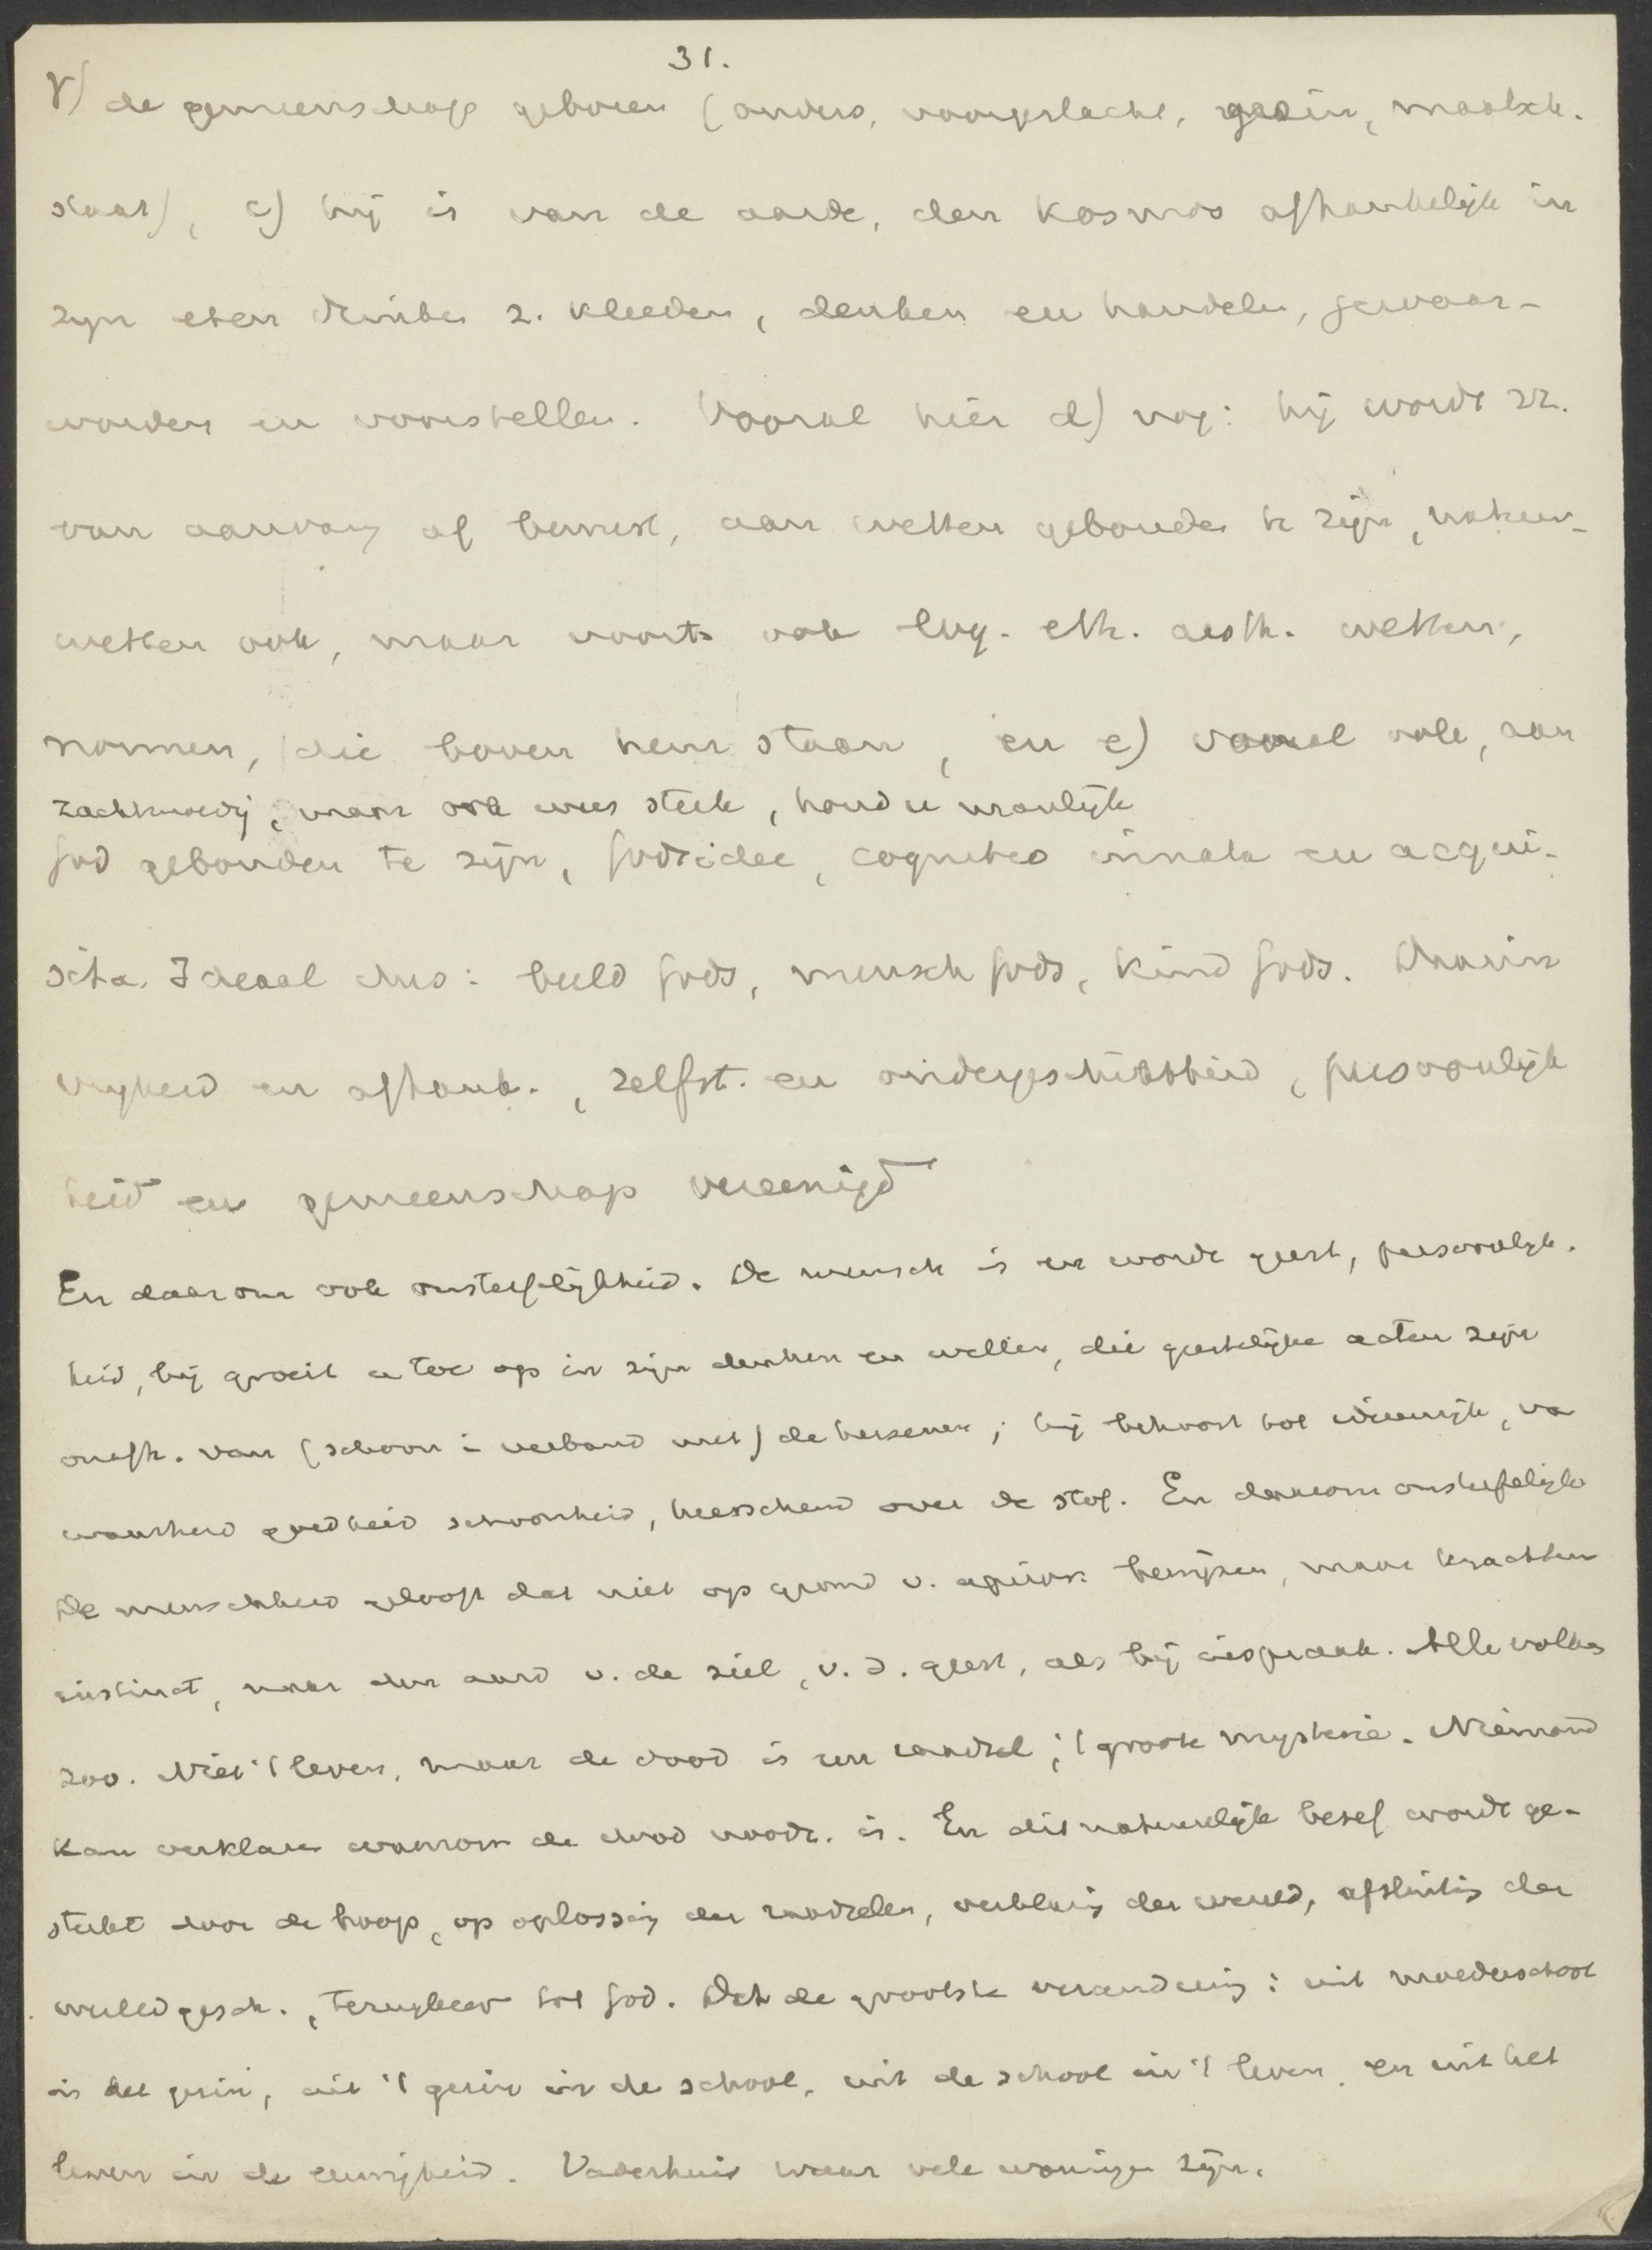 31.
γ) de gemeenschap geboren (ouders, voorgeslacht, gezin, maatsch.
staat), c) hij is van de aarde, den kosmos afhankelijk in
zijn eten drinken z. kleeden, denken en handelen, gewaar-
worden en voorstellen. Vooral hier d) nog: hij wordt zz.
van aanvang af bewust, aan wetten gebonden te zijn, natuur-
wetten ook, maar voorts ook log. eth. aesth. wetten,
normen, die boven hem staan, en e) vooral ook, aan
zachtmoedig, maar ook wees sterk, houd u manlijk
God gebonden te zijn, Godsidee, cognitio innata en acqui-
sita. Ideaal dus: beeld Gods, mensch Gods, kind Gods. Daarin
vrijheid en afhank., zelfst. en ondergeschiktheid, persoonlijk
heid en gemeenschap vereenigd
En daarom ook onsterfelijkheid. De mensch is en wordt geest, persoonlijk.
heid, hij groeit er toe op in zijn denken en willen, die geestelijke acten zijn
onafh. van (schoon in verband met) de hersenen; hij behoort tot rijk, va
waarheid goedheid schoonheid, heerschend over de stof. En daarom onsterfelijk
De menschheid gelooft dat niet op grond v. bewijzen, maar krachtens
instinct, naar den aard v. de ziel, v. d. geest, als bij inspraak. Alle volken
zoo. Niet 't leven, maar de dood is een raadsel; 't groote mysterie. Niemand
kan verklaren waarom de dood noodz. is. En dit natuurlijk besef wordt ge-
sterkt door de hoop, op oplossing der raadselen, der wereld, afsluiting der
wereldgesch., terugkeer tot God. Dat de grootste verandering: uit moederschoot
in het gezin, uit 't gezin in de school, uit de school in 't leven, en uit het
leven in de eeuwigheid. Vaderhuis waar vele woningen zijn.